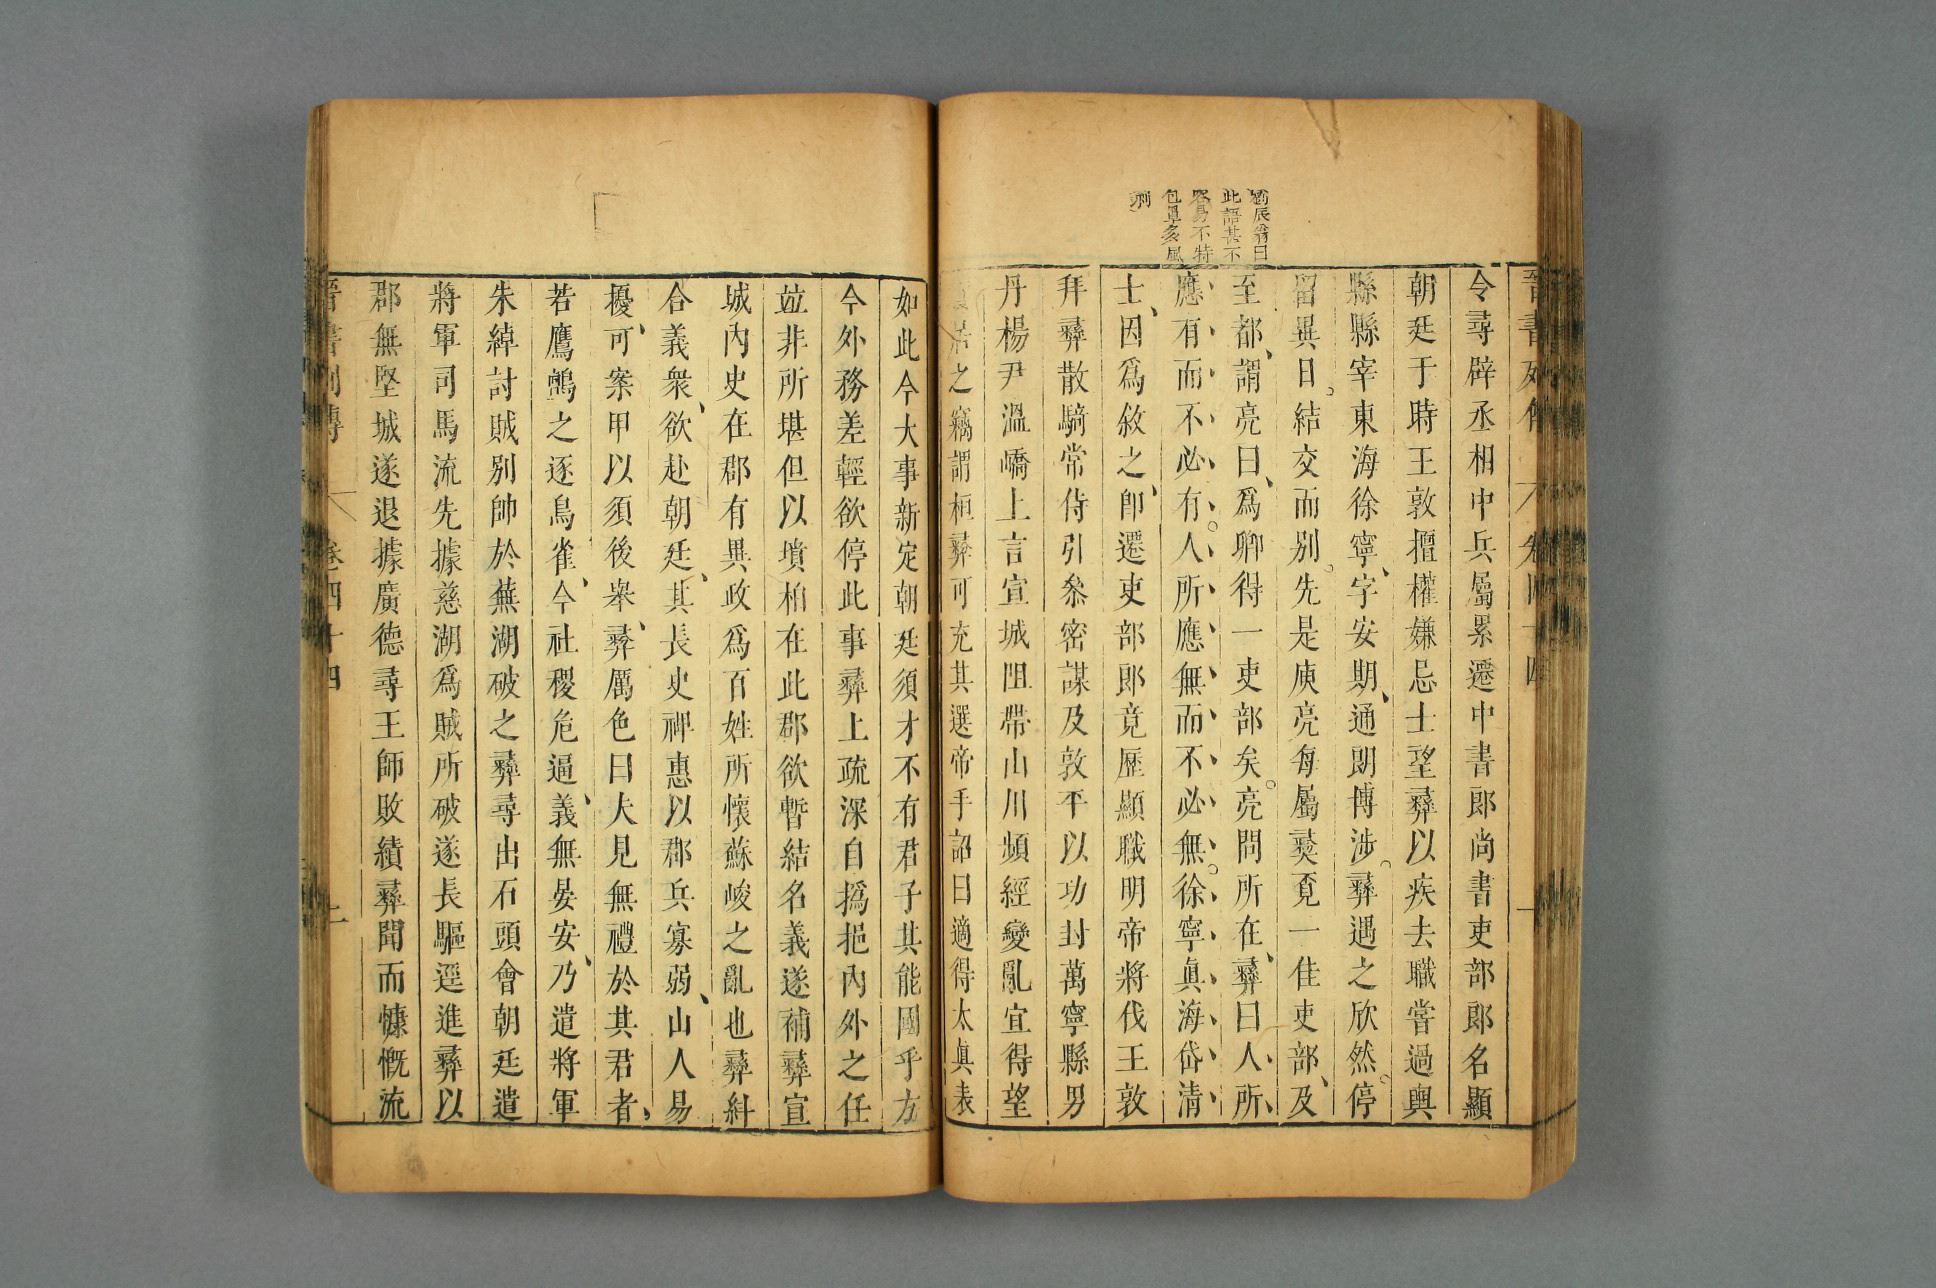 劉辰翁曰
此語甚不
容易不特
包羣多風
刺
令尋辟丞相中兵屬累遷中書郎尚書吏部郎名顯
朝廷于時王敦擅權嫌忌士望彛以疾去職嘗過輿
縣縣宰東海徐寧、字安期、通朗博涉。彛遇之欣然。停
留異日。結交而別。先是庾亮每屬彛覔一佳吏部、及
至都、謂亮曰、爲卿得一吏部矣。亮問所在、彛曰人、所、
應、有、而、不、必、有。人、所、應、無、而、不、必、無。徐、寧、眞、海、岱、淸、
士、因爲敘之、卽遷吏部郎竟歷顯職明帝將伐王敦
拜彛散騎常侍引叅密謀及敦平以功封萬寧縣男
丹楊尹溫嶠上言宣城阻帶山川頻經變亂宜得望
居之竊謂桓彛可充其選帝手詔曰適得太眞表
如此今大事新定朝廷須才不有君子其能國乎方
今外務差輕欲停此事彛上疏深自撝挹內外之任
竝非所堪但以墳柏在此郡欲暫結名義遂補彛宣
城內史在郡有異政爲百姓所懷蘇峻之亂也彛糾
合義衆、欲赴朝廷、其長史裨惠以郡兵寡弱、山人易
擾、可案甲以須後舉、彛厲色曰夫見無禮於其君者、
若鷹鸇之逐鳥雀、今社稷危逼、義無晏安、乃遣將軍
朱綽討賊別帥於蕪湖破之彛尋出石頭會朝廷遣
將軍司馬流先據慈湖爲賊所破遂長驅逕進彛以
郡無堅城遂退據廣德尋王師敗績彛聞而慷慨流
晉書列傳 卷四十四 二